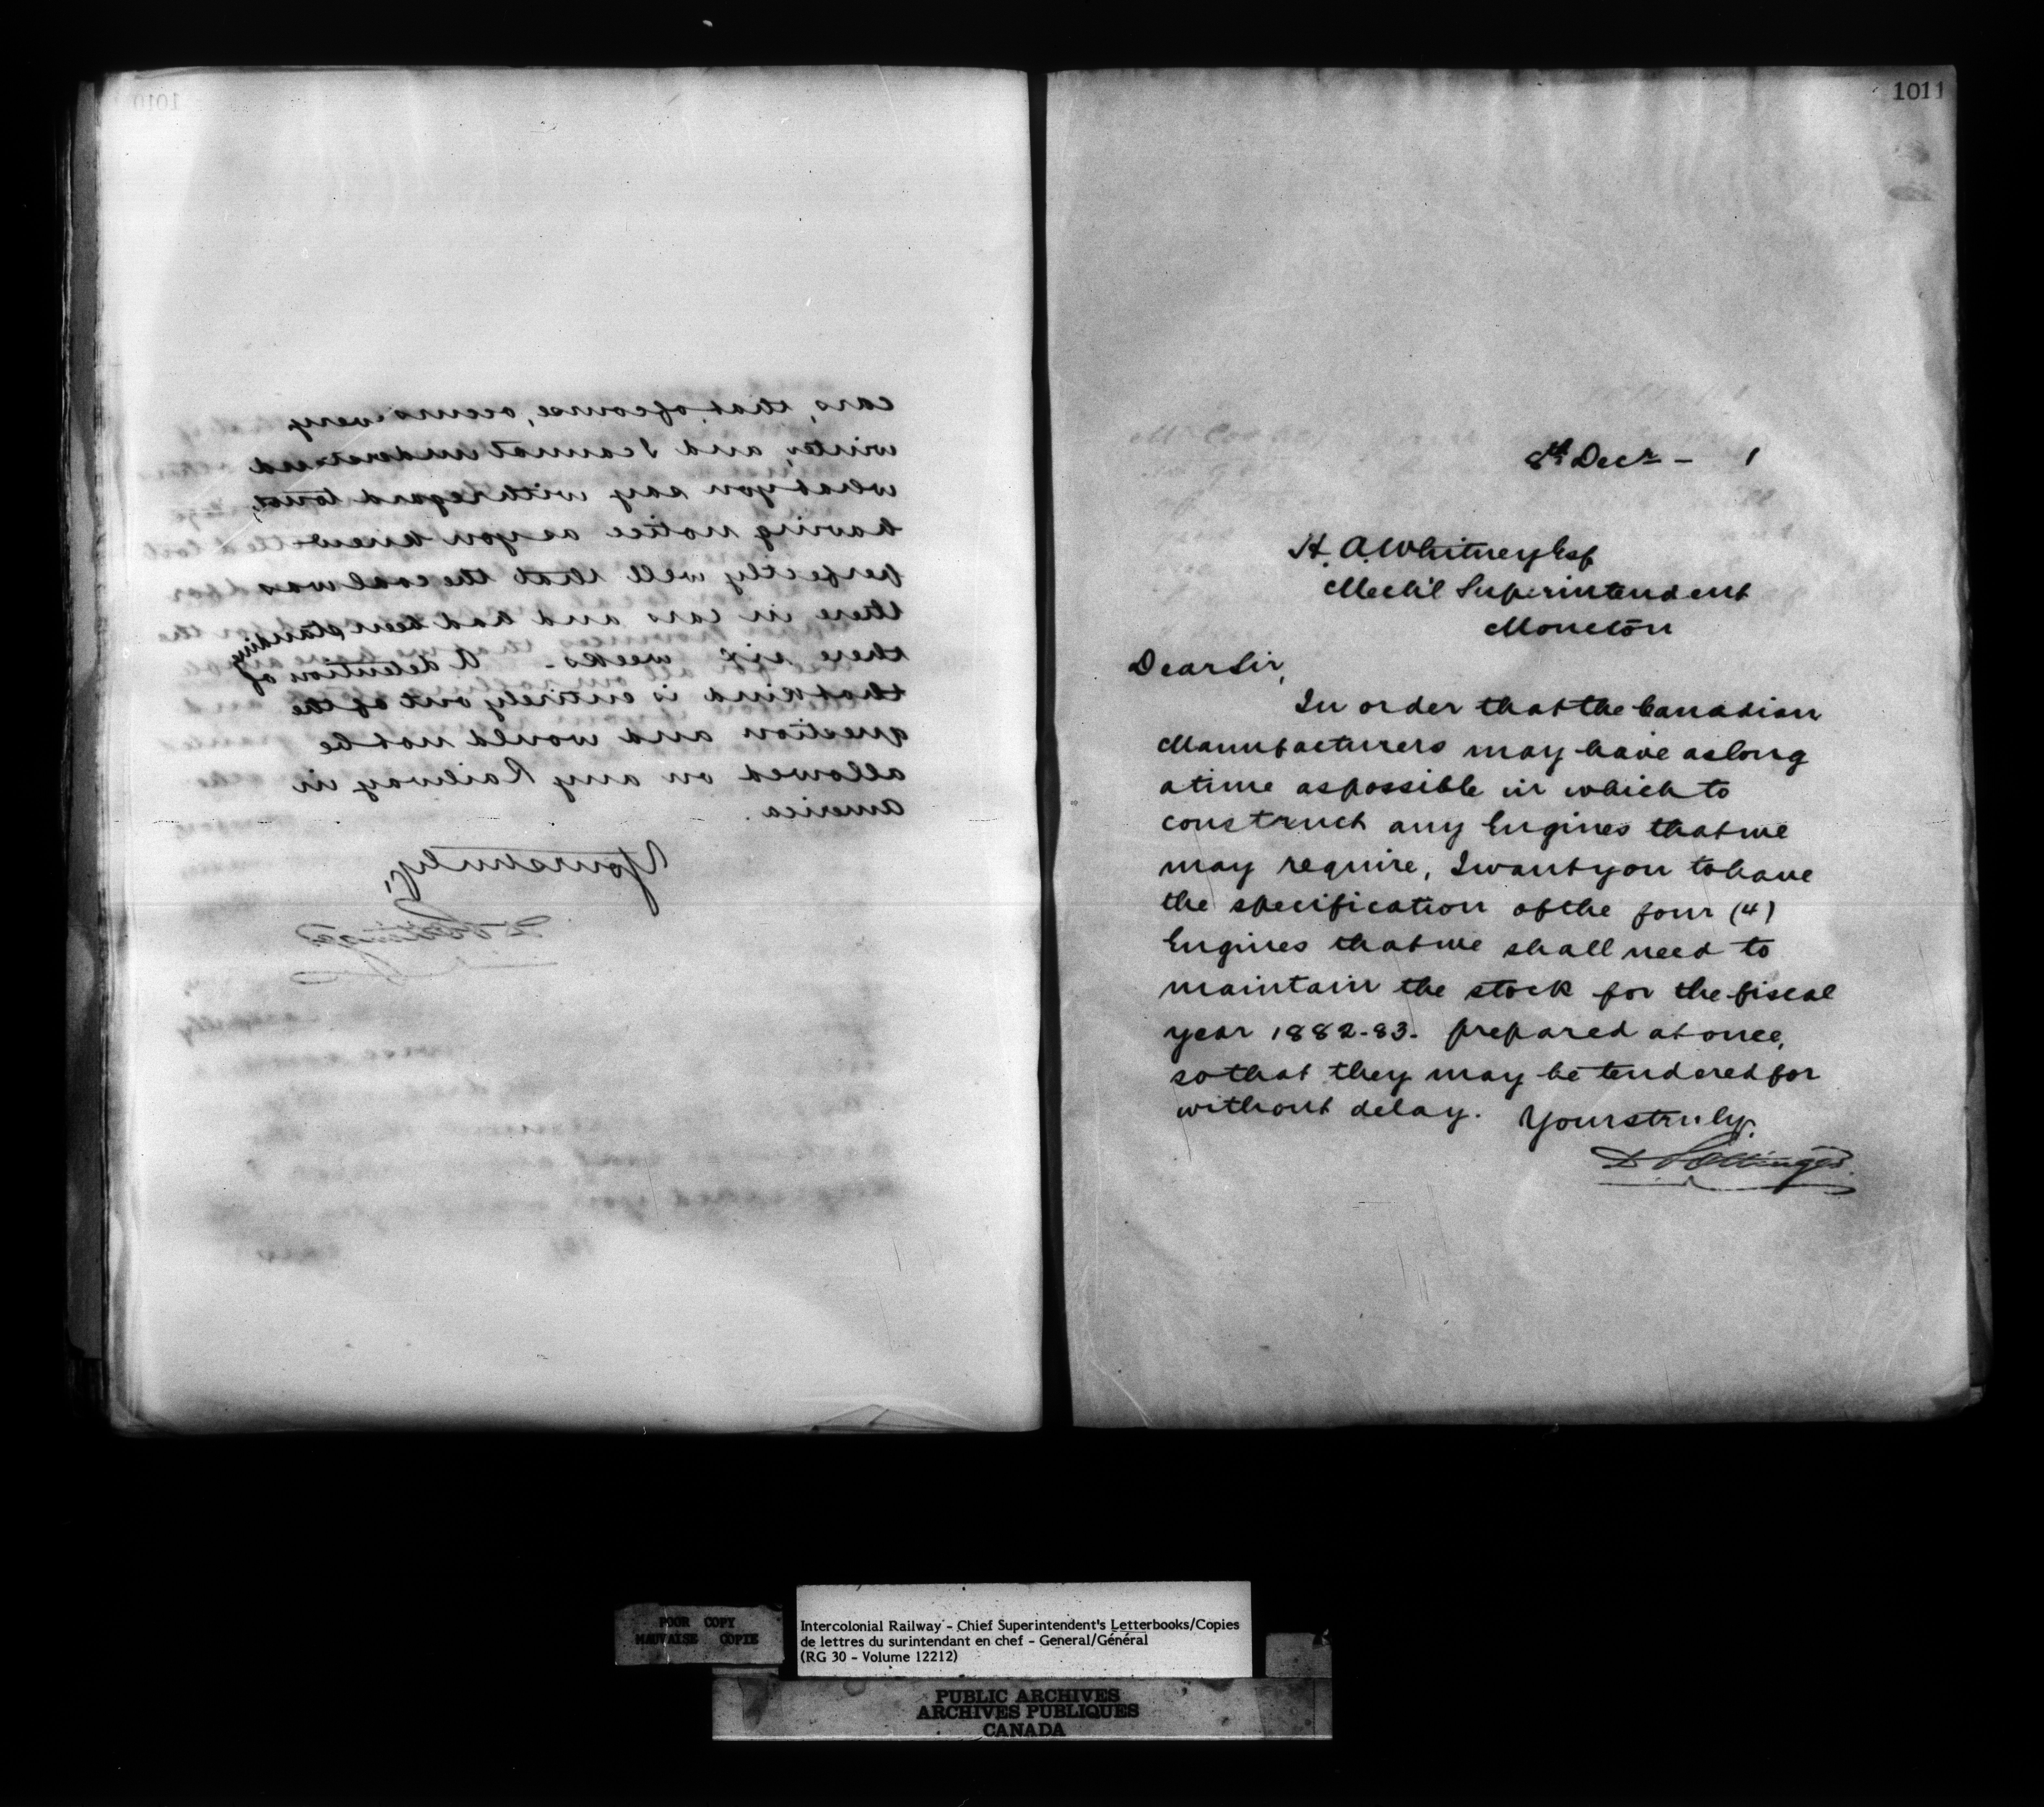 1010
cars, that, of course, occurs every
winter, and I cannot understand
what you say with regard to not,
having notice as you knew
perfectly well that the coal was
there in cars and had been standing
there six weeks - A detention of
that kind is entirely out of the
question and would not be
allowed on any Railway in
America.
Yours truly,
D Pottinger
1011
8th Decr - 1
H. A. Whitney Esq
Mechl Superintendent
Moncton
Dear Sir,
In order that the Canadian
Manufacturers may have as long
a time as possible in which to
construct any Engines that we
may require, I want you to have
the specification of the four (4)
Engines that we shall need to
maintain the stock for the fiscal
year 1882-83. prepared at once,
so that they may be tendered for
without delay. Yours truly.
D Pottinger
POOR COPY
MAUVAISE COPIE
Intercolonial Railway - Chief Superintendent's Letterbooks/Copies
de lettres du surintendant en chef - General/Général
(RG 30 - Volume 12212)
PUBLIC ARCHIVES
ARCHIVES PUBLIQUES
CANADA